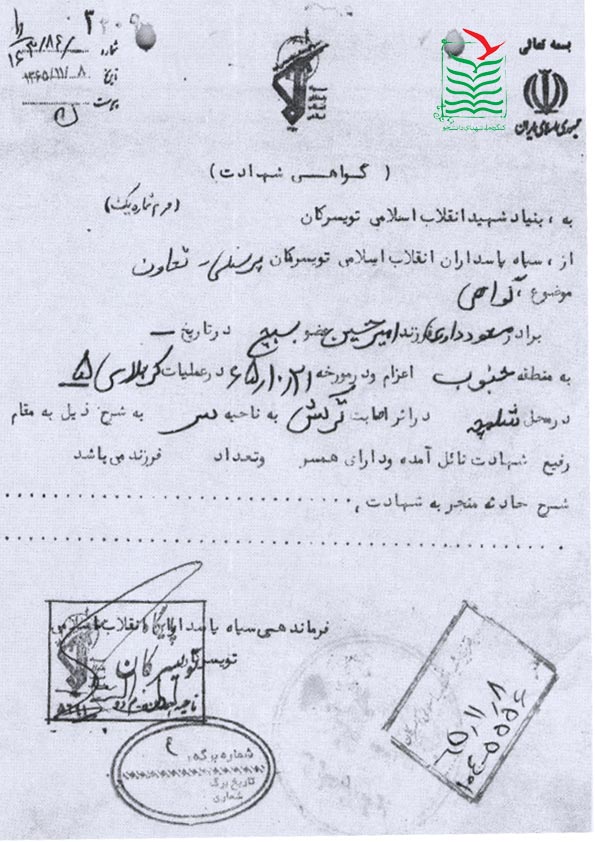 بسمه تعالی
جمهوری اسلامی ایران
کنگره ملی شهدای دانشجو
شماره
تاریخ ۱۳۶۵/۱۱/۸
پیوست
( گواهی شهادت )
(فرم شماره یک)
به ، بنیاد شهید انقلاب اسلامی تویسرکان
از ، سپاه پاسداران انقلاب اسلامی تویسرکان پرسنلی - تعاون
موضوع ، گواهی
برادر مسعود داوری فرزند امیرحسین عضو بسیج در تاریخ —
به منطقه جنوب اعزام و در مورخه ۶۵/۱۰/۲۱ در عملیات کربلای ۵
در محل شلمچه در اثر اصابت ترکش به ناحیه سر به شرح ذیل به مقام
رفیع شهادت نائل آمده و دارای همسر و تعداد فرزند می باشد
شرح حادثه منجر به شهادت ،
فرماندهی سپاه پاسداران انقلاب اسلامی
تویسرکان
شماره برگه ۶
تاریخ برگ
شماری
۶۵/۱۱/۸